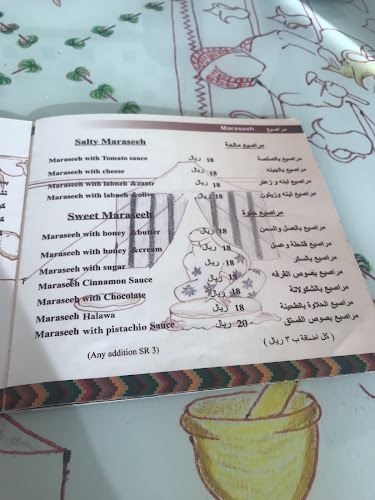 Maraseeh مراصيع
Salty Maraseeh مراصيع مالحة
Maraseeh with Tomato sauce 18 ريال مراصيع بالصلصة
Maraseeh with cheese 18 ريال مراصيع بالجبنه
Maraseeh with labneh &zaatr 18 ريال مراصيع لبنه و زعتر
Maraseeh with labneh &olive 18 ريال مراصيع لبنه وزيتون
Sweet Maraseeh مراصيع حلوة
Maraseeh with honey &butter 18 ريال مراصيع بالعسل والسمن
Maraseeh with honey &cream 18 ريال مراصيع قشطة وعسل
Maraseeh with sugar 18 ريال مراصيع بالسكر
Maraseeh Cinnamon Sauce 18 ريال مراصيع بصوص القرفه
Maraseeh with Chocolate 18 ريال مراصيع بالشكولاتة
Maraseeh Halawa 18 ريال مراصيع الحلاوة بالطحينة
Maraseeh with pistachio Sauce 20 ريال مراصيع بصوص الفستق
(Any addition SR 3) ( كل اضافة ب ٣ ريال )